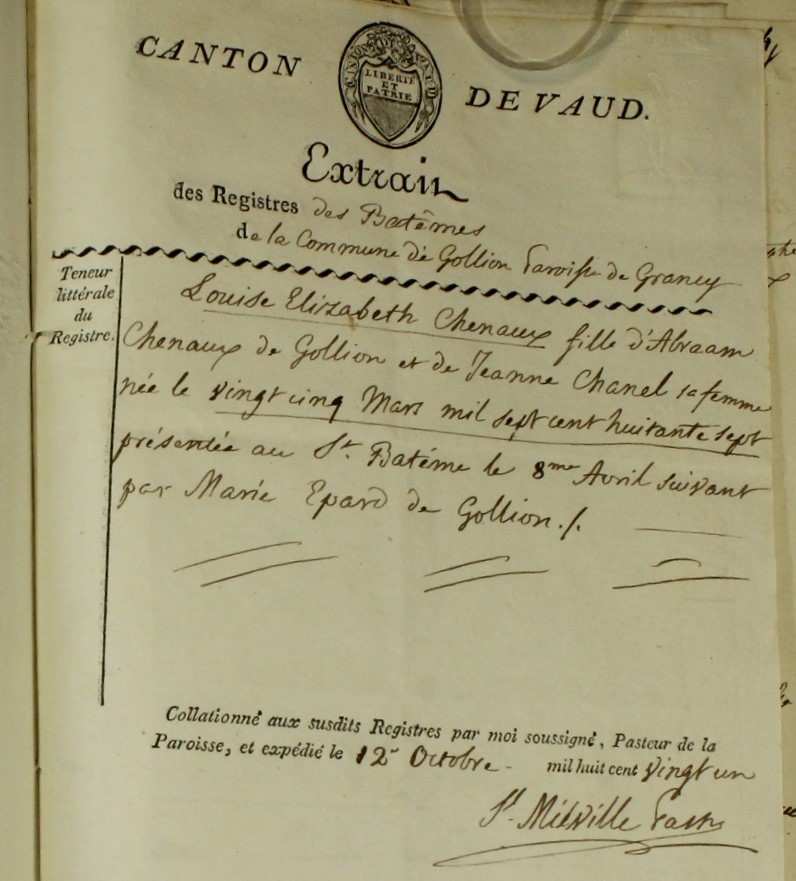 CANTON DE VAUD.
CANTON DE VAUD
LIBERTÉ
ET
PATRIE
Extrait
des Registres des Batêmes
de la Commune de Gollion Paroisse de Grancy
Teneur
littérale
du
Registre.
Louise Elizabeth Chenaux fille d'Abraam
Chenaux de Gollion et de Jeanne Chanel sa femme
née le vingt cinq Mars mil sept cent huitante sept
présentée au St. Batême le 8me Avril suivant
par Marie Epard de Gollion ./.
Collationné aux susdits Registres par moi soussigné, Pasteur de la
Paroisse, et expédié le 12e Octobre - mil huit cent vingt un
Miéville Past